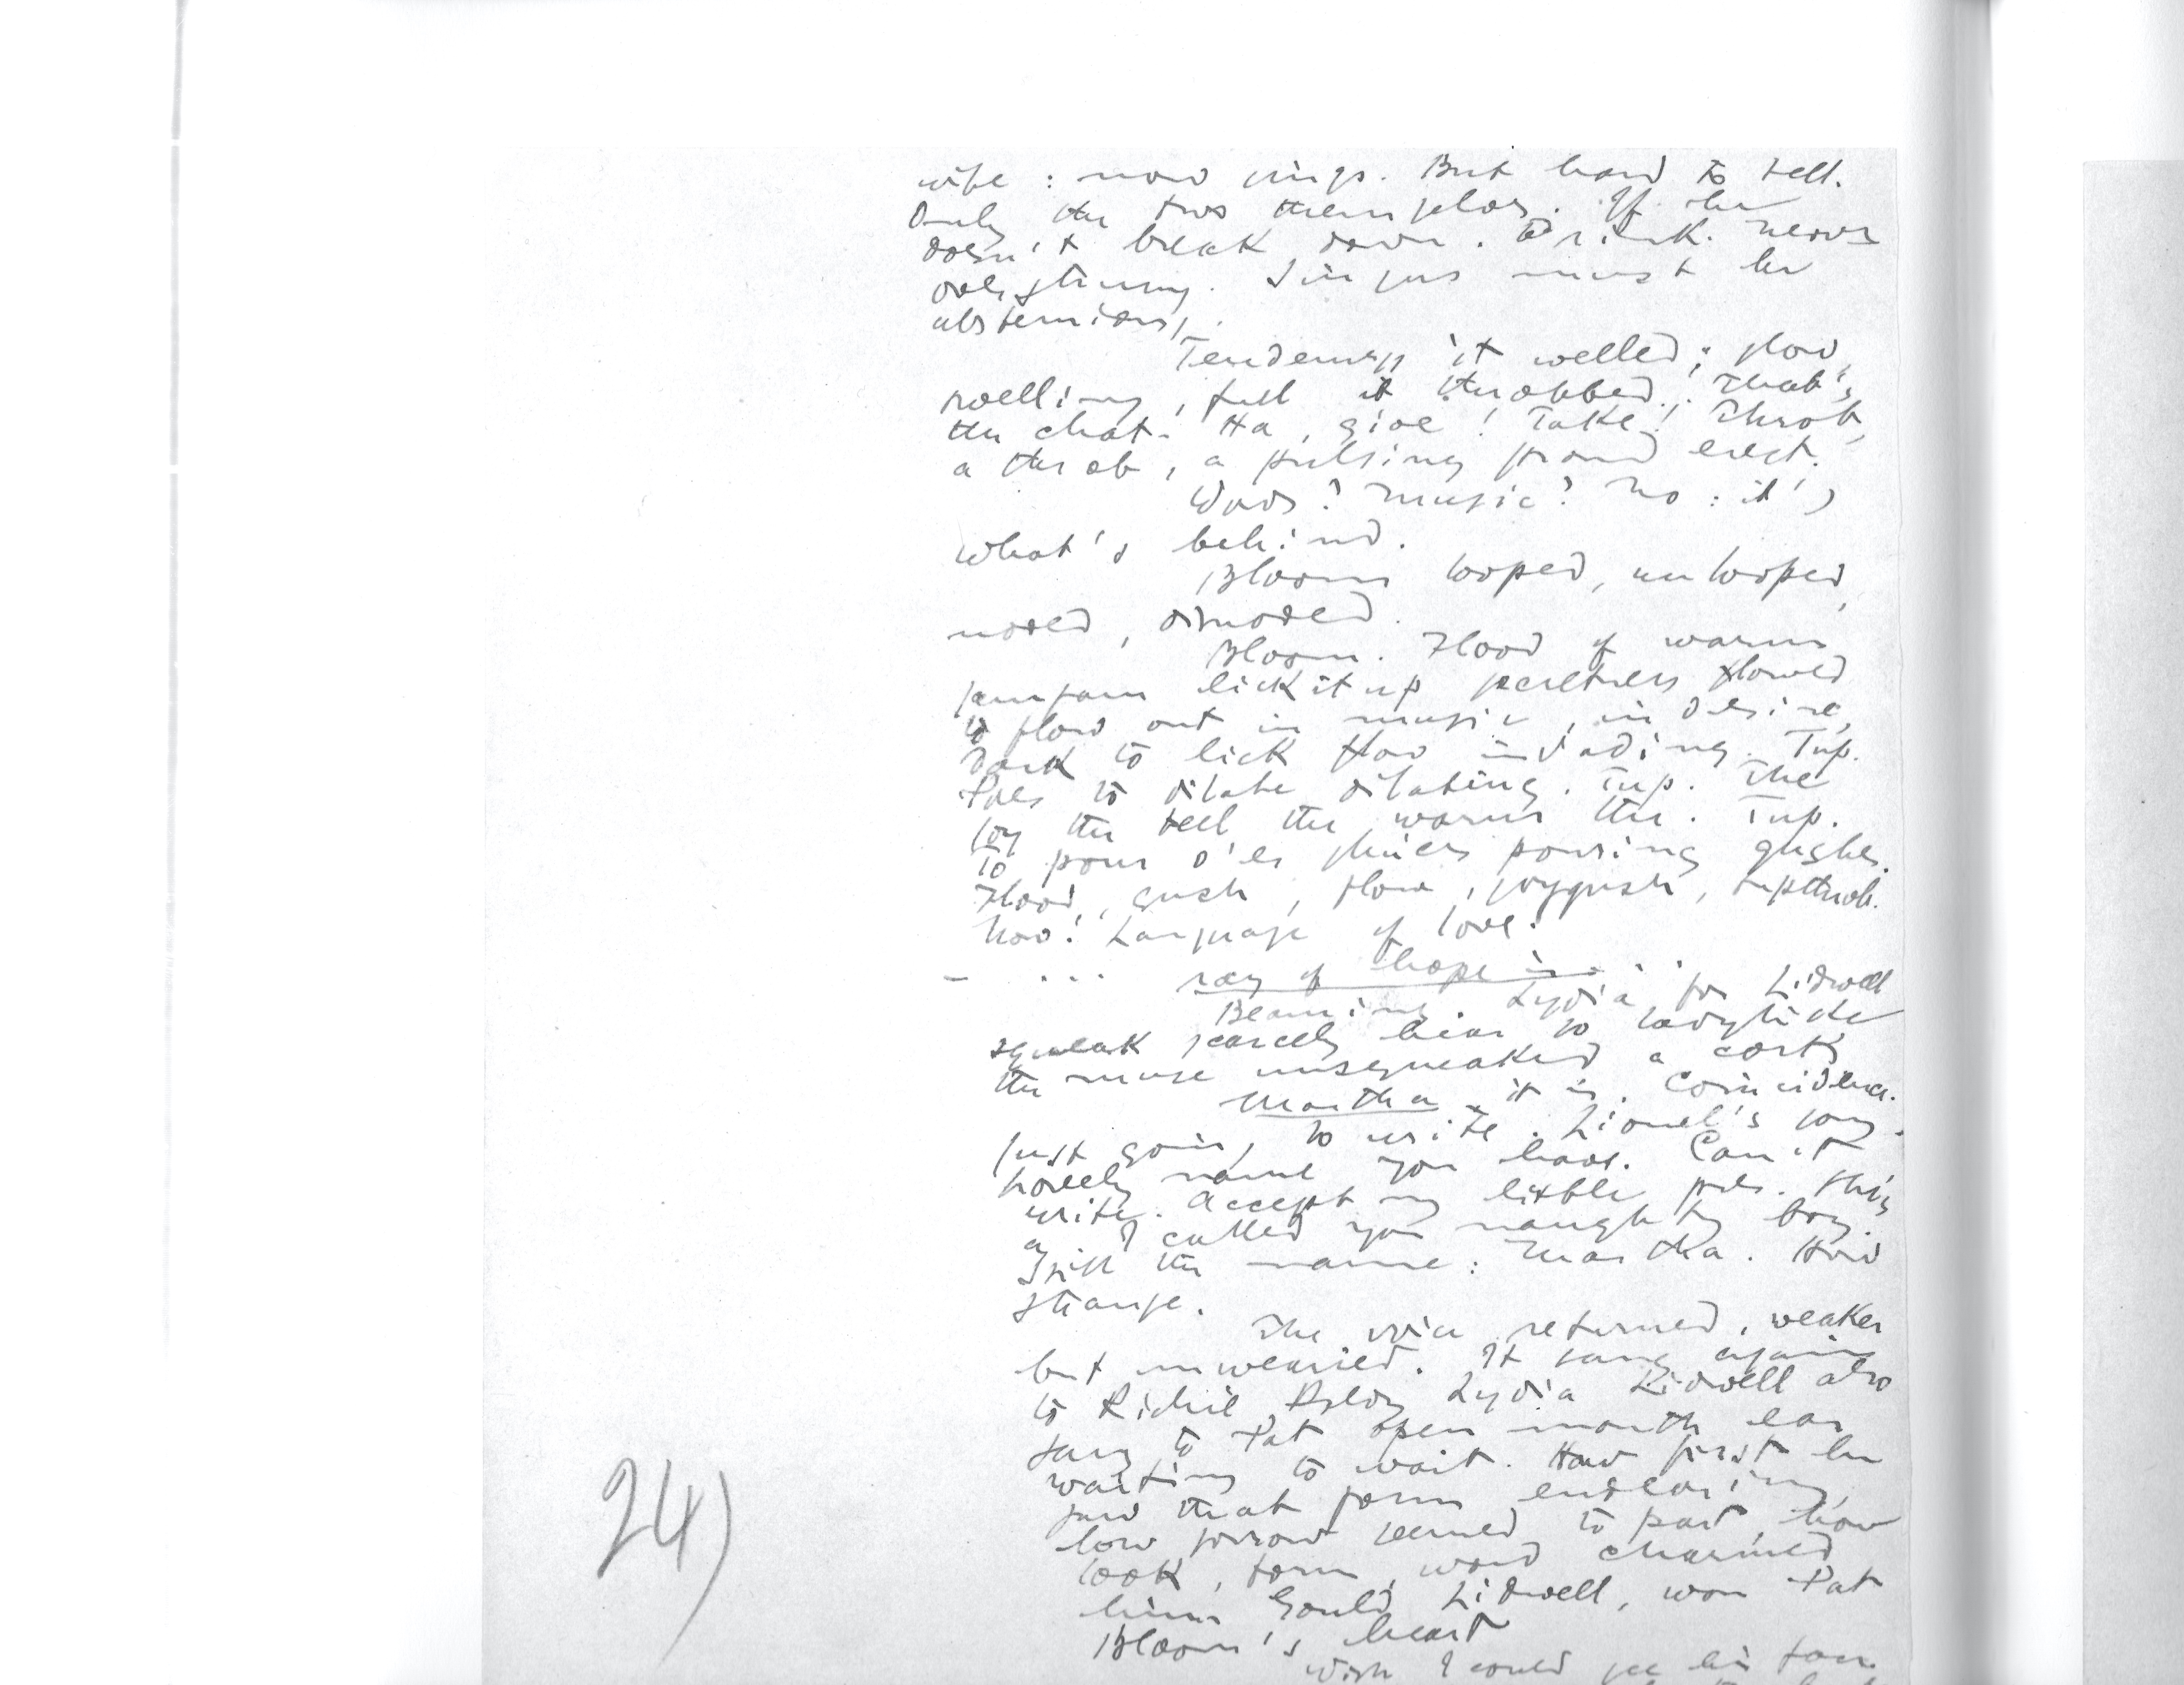 wife: now sings. But hard to tell.
Only the two themselves. If he
doesn't break down. Drink. Nerves
overstrung. Singer must be
abstemious.
Tenderness it welled: slow,
swelling, full it throbbed. That's
the chat. Ha, give! Take! Throb,
a throb, a pulsing proud erect.
Words? Music? No: it's
what's behind.
Bloom looped, unlooped,
noded, disnoded.
Bloom. Flood of warm
jamjam lickitup secretness flowed
to flow out in music, in desire,
dark to lick flow invading. Tup.
Pores to dilate dilating. Tup. The
joy the feel the warm the. Tup.
To pour o'er sluices pouring gushes.
Flood, gush, flow, joygush, tupthrob.
Now! Language of love.
— ... ray of hope is ...
Beaming. Lydia for Lidwell
squeak scarcely hear so ladylike
the muse unsqueaked a cork.
Martha it is. Coincidence.
Just going to write. Lionel's song.
Lovely name you have. Can't
write. Accept my little pres. This
a I called you naughty boy.
Still the name: Martha. How
strange.
The voice returned, weaker
but unwearied. It sang again
to Richie Poldy Lydia Lidwell also
sang to Pat open mouth ear
waiting to wait. How first he
saw that form endearing,
how sorrow seemed to part, how
look, form, word charmed
him Gould Lidwell, won Pat
Bloom's heart
Wish I could see his face.
24)